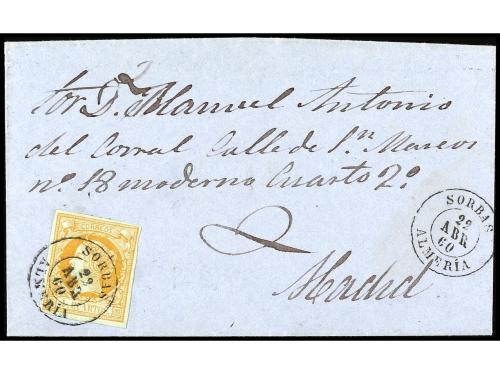 Sor. D. Manuel Antonio
del Corral Calle de Sn. Marcos
nº 18 moderno Cuarto 2º
Madrid
CORREOS
SORBAS
22
ABR
60
ALMERÍA
SORBAS
22
ABR
60
ALMERÍA